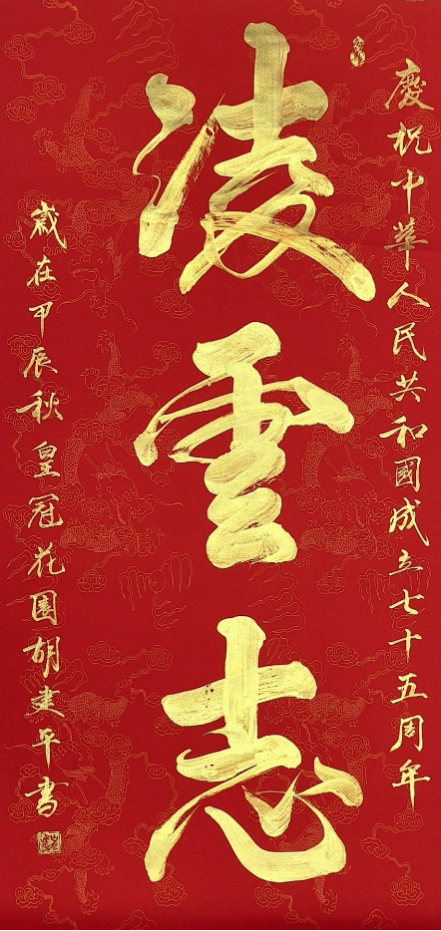 慶祝中華人民共和國成立七十五周年
凌雲志
歲在甲辰秋皇冠花園胡建平書